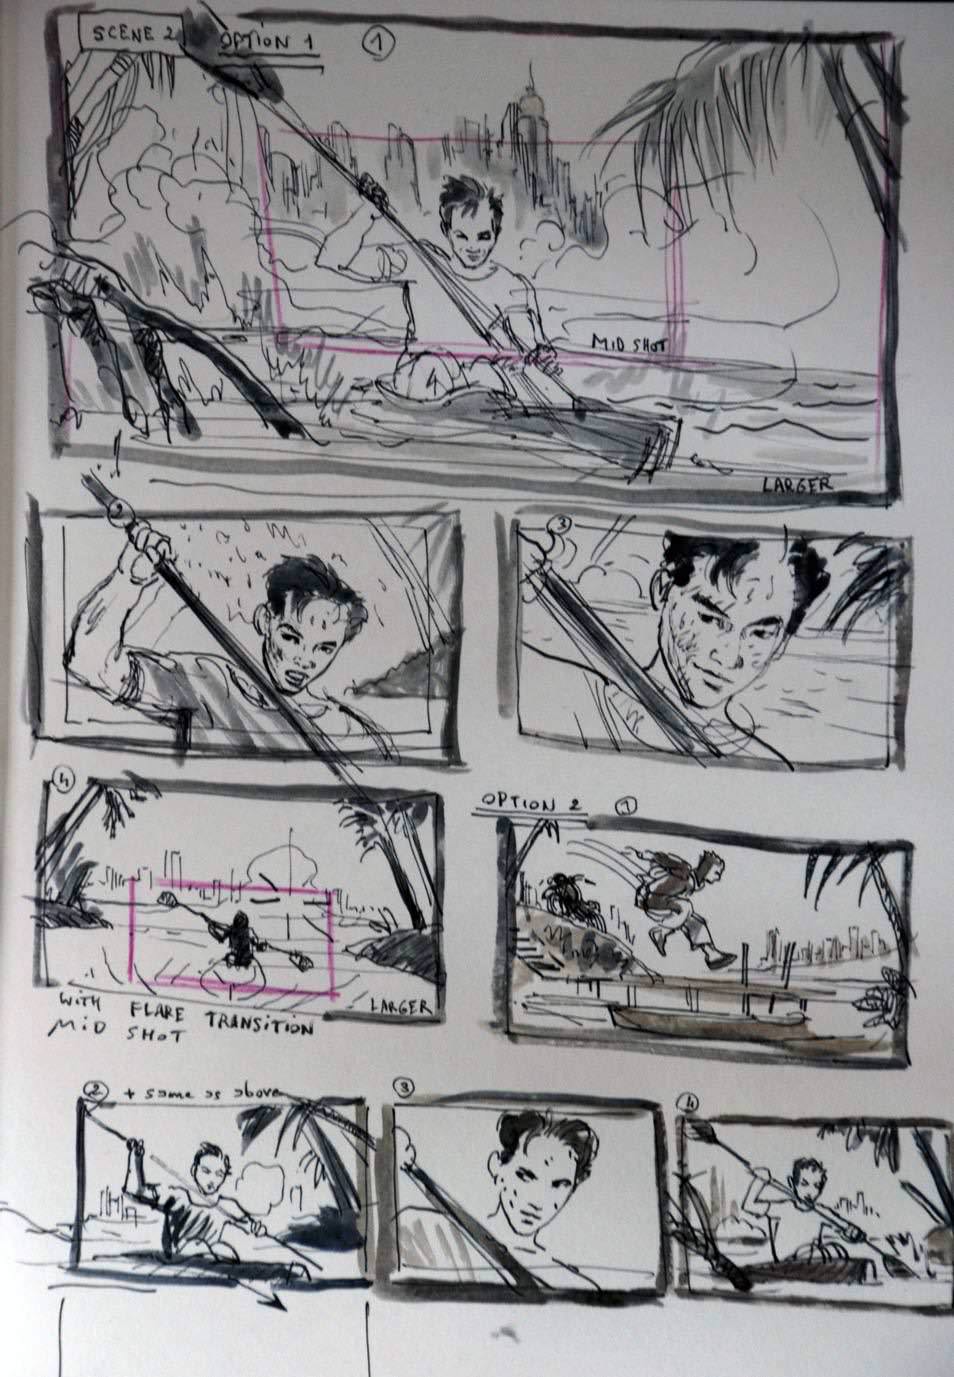 SCENE 2 OPTION 1 1
MID SHOT
LARGER
2
3
4
WITH FLARE TRANSITION
MID SHOT
LARGER
OPTION 2 1
2 + same as above
3
4